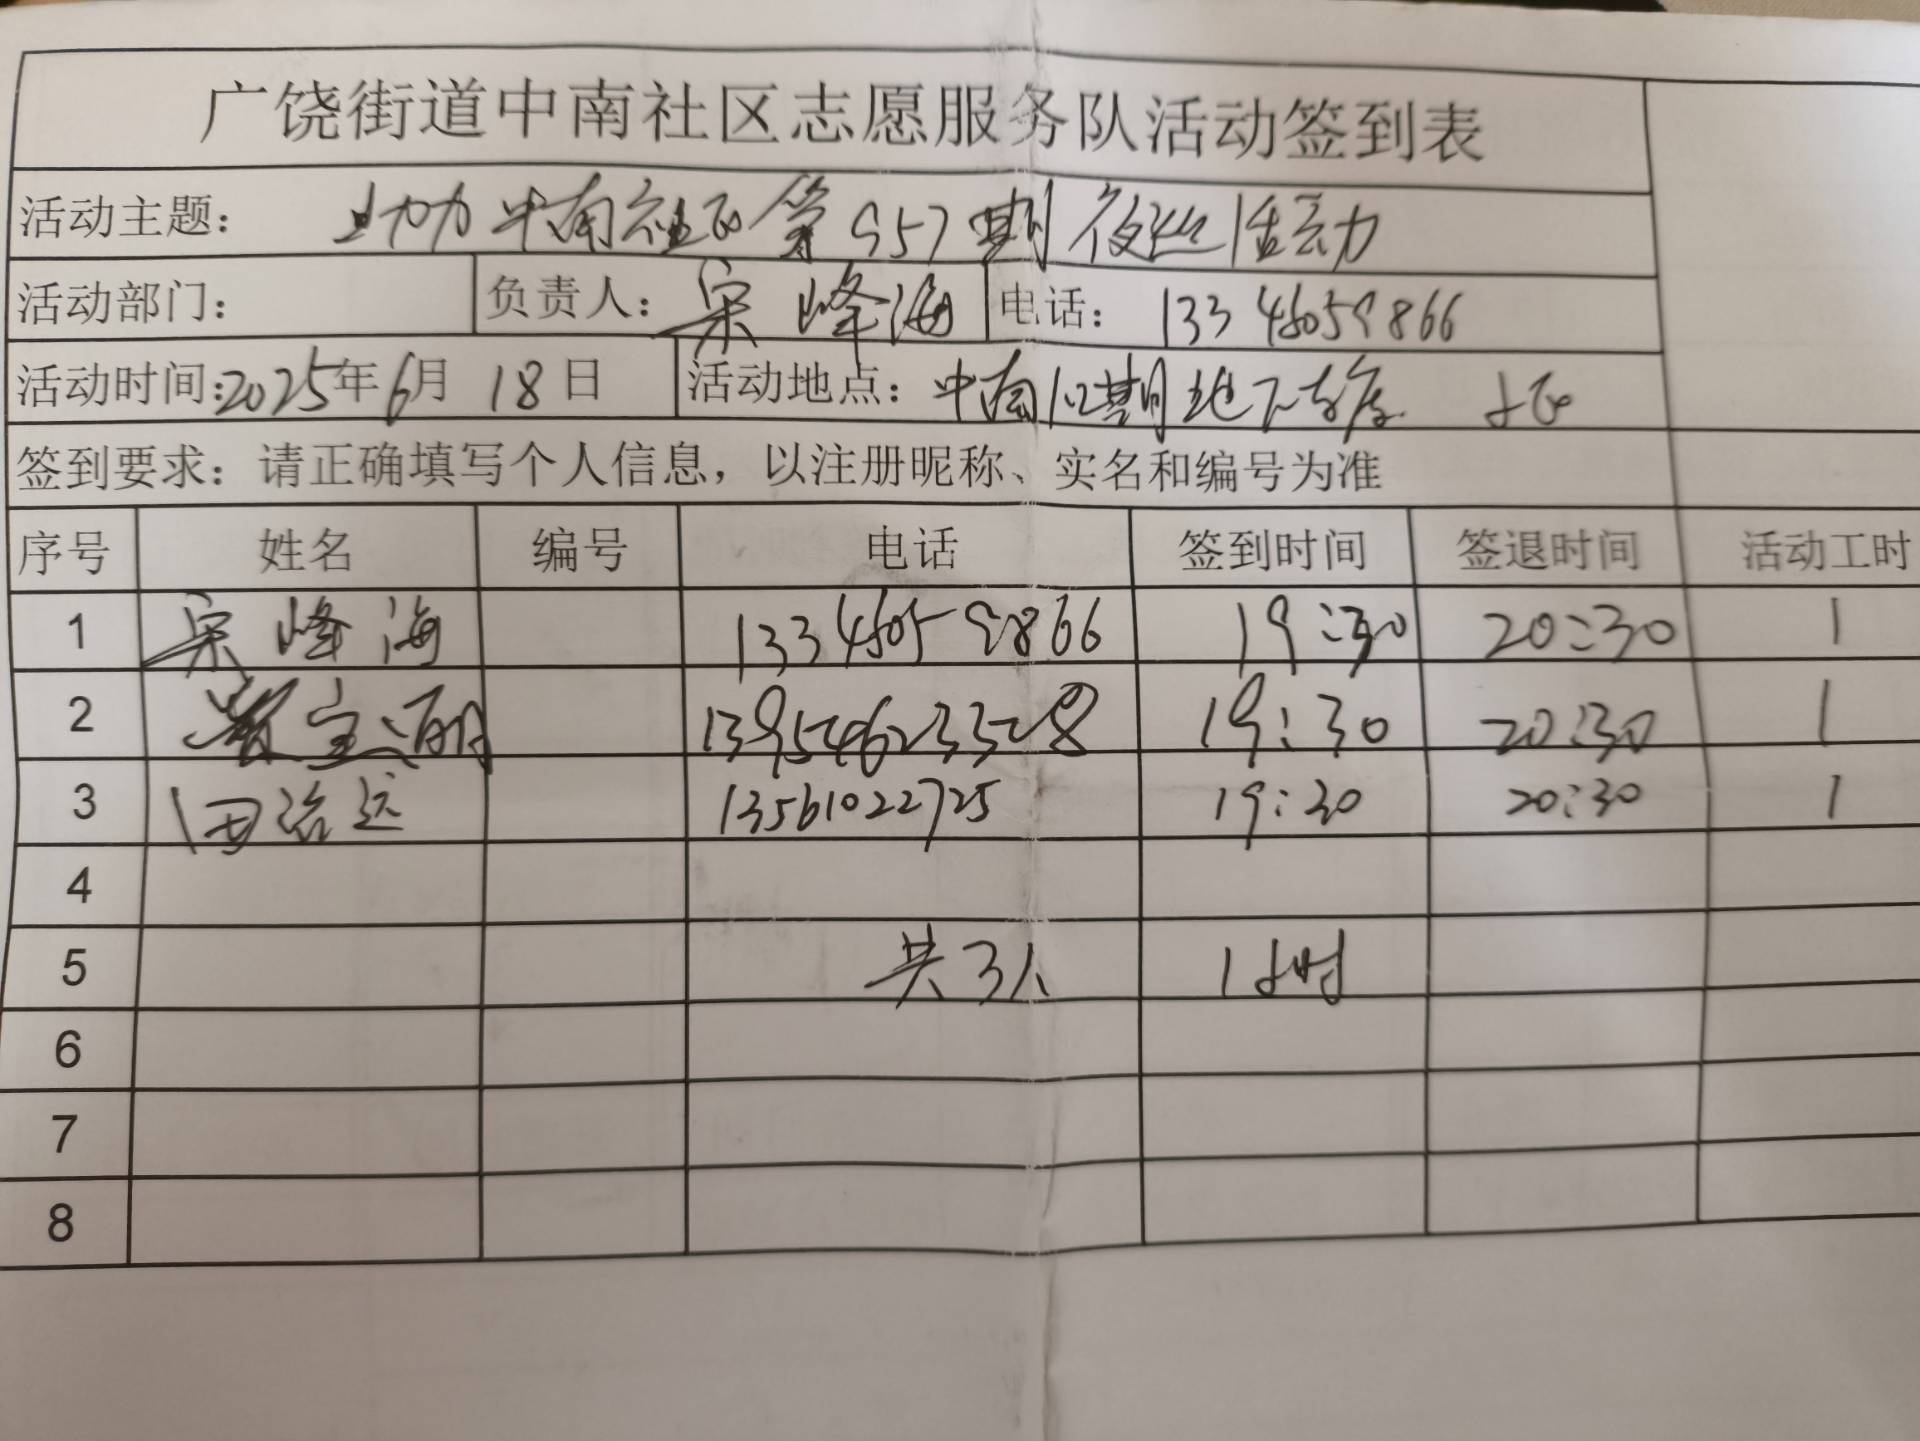 广饶街道中南社区志愿服务队活动签到表
活动主题: 助力中南社区第957期夜巡活动
活动部门: 负责人: 宋峰海 电话: 13346059866
活动时间:2025年6月18日 活动地点: 中南1.2期地下车库
签到要求:请正确填写个人信息,以注册昵称、实名和编号为准
序号 姓名 编号 电话 签到时间 签退时间 活动工时
1 宋峰海 13346059866 19:30 20:30 1
2 13954623328 19:30 20:30 1
3 田治远 13561022725 19:30 20:30 1
4
5 共3人 1小时
6
7
8